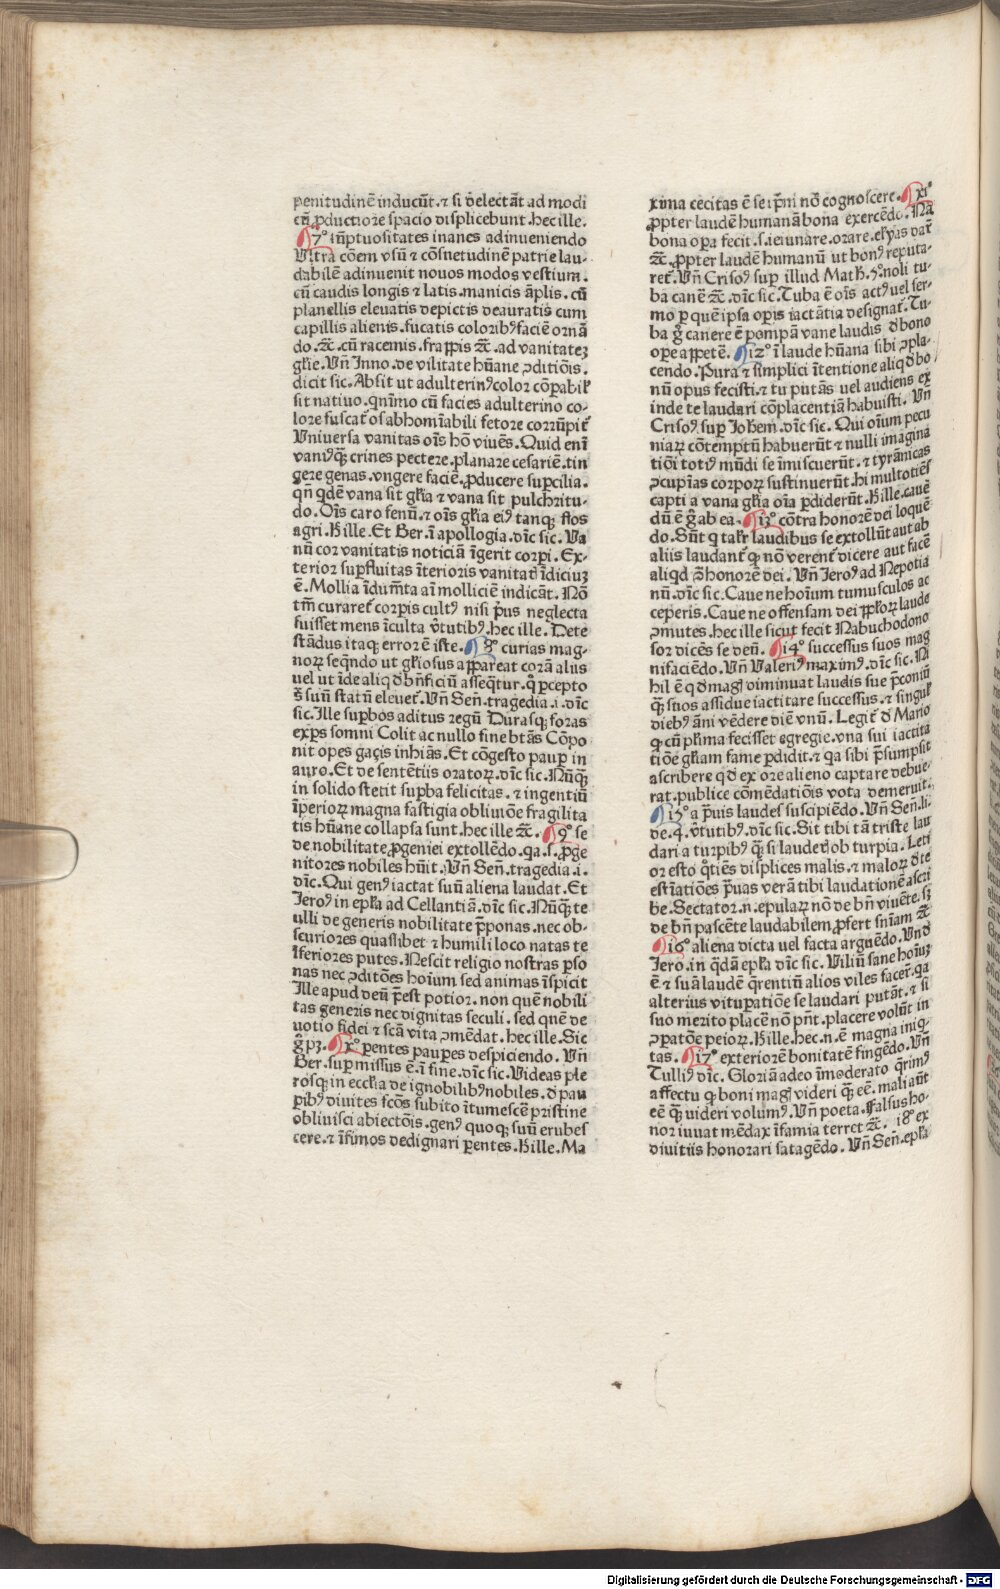 penitudinē inducūt.⁊ si delectāt ad modi
cū ꝓductiore spacio displicebunt.hec ille.
7° sūptuositates inanes adinueniendo
Vltra cōem vsū ⁊ cōsuetudinē patrie lau-
dabilē adinuenit nouos modos vestium.
cū caudis longis ⁊ latis.manicis āplis.cū
planellis eleuatis depictis deauratis cum
capillis alienis.fucatis coloribꝰ faciē ornā
do.⁊c̄.cū racemis.frappis ⁊c̄.ad vanitateꝫ
gl̄ie.Vn̄ Inno.de vilitate hūane ↄditiōis.
dicit sic.Absit ut adulterinꝰ color cōꝑabil̄
sit natiuo.qnīmo cū facies adulterino co-
lore fuscat̄ os abhomīabili fetore corrūpit̄
Vniuersa vanitas oīs hō viuēs.Quid enī
vaniꝰ ꝙ̄ crines pectere.planare cesariē.tin
gere genas.vngere faciē.ꝓducere suꝑcilia.
qn̄ qdē vana sit gl̄ia ⁊ vana sit pulchritu-
do.Oīs caro fenū.⁊ oīs gl̄ia eiꝰ tanꝙ flos
agri.Hille.Et Ber.ī apollogia.dīc sic.Va
nū cor vanitatis noticiā īgerit corpi.Ex-
terior suꝑfluitas īterioris vanitat̄ īdiciuꝫ
ē.Mollia īdum̄ta aī molliciē indicāt.Nō
tm̄ curaret̄ corpis cultꝰ nisi p̄us neglecta
fuisset mens īculta v̄tutibꝰ.hec ille.Dete
stādus itaꝙ error ē iste. 8° curias mag-
noꝝ seqn̄do ut gl̄iosus appareat corā aliis
uel ut īde aliq̄d bn̄ficiū asseqtur.q̄ ꝑcepto
s̄ suū statū eleuet̄.Vn̄ Sen̄.tragedia.i.dīc
sic.Ille suꝑbos aditus regū Durasꝙ foras
exꝑs somni Colit ac nullo fine btās Cōpo
nit opes gaçis inhiās.Et cōgesto pauꝑ in
auro.Et de sentētiis oratoꝝ.dīc sic.Nūꝙ̄
in solido stetit suꝑba felicitas.⁊ ingentiū
īꝑerioꝝ magna fastigia obliuiōe fragilita
tis hūane collapsa sunt.hec ille ⁊c̄. 9° se
de nobilitate ꝓgeniei extollēdo.qa.s.ꝓge
nitores nobiles hn̄it.Vn̄ Sen̄.tragedia.i.
dīc.Qui genꝰ iactat suū aliena laudat.Et
Jeroꝰ in epl̄a ad Cellantiā.dīc sic.Nūꝙ̄ te
ulli de generis nobilitate p̄ponas.nec ob-
scuriores quaslibet ⁊ humili loco natas te
īferiores putes.Nescit religio nostras ꝑso
nas nec ↄditōes hoium sed animas īspicit
Ille apud deū p̄est potior.non quē nobili
tas generis nec dignitas seculi.sed quē de
uotio fidei ⁊ scā vita ↄmēdat.hec ille.Sic
ḡ pꝫ. x° ꝑentes pauꝑes despiciendo.Vn̄
Ber.suꝑ missus ē.ī fine.dīc sic.Videas ple
rosꝙ in eccl̄ia de ignobilibꝰ nobiles.d̄ pau
ꝑibꝰ diuites fc̄os subito ītumescē pristine
obliuisci abiectōis.genꝰ quoꝙ suū erubes
cere.⁊ īfimos dedignari ꝑentes.Hille.Ma
xima cecitas ē se ip̄m nō cognoscere. xi°
ꝓpter laudē humanā bona exercēdo.Nā
bona oꝑa fecit.s.ieiunare.orare.elyas dar̄
⁊c̄.ꝓpter laudē humanū ut bonꝰ reputa-
ret̄.Vn̄ Crisoꝰ suꝑ illud Math.5°.noli tu-
ba canē ⁊c̄.dīc sic.Tuba ē oīs actꝰ uel ser-
mo ꝑ quē ipsa oꝑis iactātia designat̄.Tu-
ba ḡ canere ē pompā vane laudis d̄ bono
oꝑe appetē. 12° ī laude hūana sibi ↄpla-
cendo.Pura ⁊ simplici ītentione aliq̄d bo
nū opus fecisti.⁊ tu putās uel audiens ex
inde te laudari cōplacentiā habuisti.Vn̄
Crisoꝰ suꝑ Johem.dīc sic.Qui oīum pecu
niaꝝ cōtemptū habuerūt ⁊ nulli imagina
tiōi totiꝰ mūdi se īmiscuerūt.⁊ tyrānicas
ↄcupīas corpoꝝ sustinuerūt.hi multotiēs
capti a vana gl̄ia oīa ꝑdiderūt.Hille.cauē
dū ē ḡ ab ea. 13° cōtra honorē dei loquē
do.Sūt q̄ talr̄ laudibus se extollūt aut ab
aliis laudant̄ q̄ nō verent̄ dicere aut facē
aliq̄d ↄ̄ honorē dei.Vn̄ Jeroꝰ ad Nepotia
nū.dīc sic.Caue ne hoīum tumusculos ac
ceperis.Caue ne offensam dei ppl̄oꝝ laude
ↄmutes.hec ille sicut fecit Nabuchodono
sor dicēs se deū. 14° successus suos mag
nifaciēdo.Vn̄ Valeriꝰ maximꝰ.dīc sic.Ni
hil ē q̄d magꝭ diminuat laudis sue p̄coniū
ꝙ̄ suos assidue iactitare successus.⁊ singul̄
diebꝰ āni vēdere diē vnū.Legit̄ d̄ Mario
q̄ cū pl̄ima fecisset egregie.vna sui iactita
tiōe gl̄iam fame ꝑdidit.⁊ qa sibi p̄sumpsit
ascribere q̄d ex ore alieno captare debue-
rat.publice cōmēdatiōis vota demeruit.
15° a p̄uis laudes suscipiēdo.Vn̄ Sen̄.li-
de.4.v̄tutibꝰ.dīc sic.Sit tibi tā triste lau
dari a turpibꝰ ꝙ̄ si lauderꝭ ob turpia.Leti
or esto q̄tiēs displices malis.⁊ maloꝝ d̄ te
estīatiōes p̄uas verā tibi laudationē ascri
be.Sectator.n.epulaꝝ nō de bn̄ viuēte.sꝫ
de bn̄ pascēte laudabilem ꝓfert sn̄iam ⁊c̄
16° aliena dicta uel facta arguēdo.Vn̄ d̄
Jero.in q̄dā epl̄a dīc sic.Viliū sane hoīuꝫ
ē ⁊ suā laudē q̄rentiū alios viles facer̄.qa
alterius vituꝑatiōe se laudari putāt.⁊ si
suo merito placē nō pn̄t.placere volūt in
ↄꝑatōe peioꝝ.Hille.hec.n.ē magna iniq̄
tas. 17° exteriorē bonitatē fingēdo.Vn̄
Tulliꝰ dīc.Gloriā adeo īmoderato q̄rimꝰ
affectu q̄ boni magꝭ videri ꝙ̄ eē.mali aūt
eē ꝙ̄ uideri volumꝰ.Vn̄ poeta.Falsus ho-
nor iuuat mēdax īfamia terret ⁊c̄. 18° ex
diuitiis honorari satagēdo.Vn̄ Sen̄.epl̄a
Digitalisierung gefördert durch die Deutsche Forschungsgemeinschaft - DFG